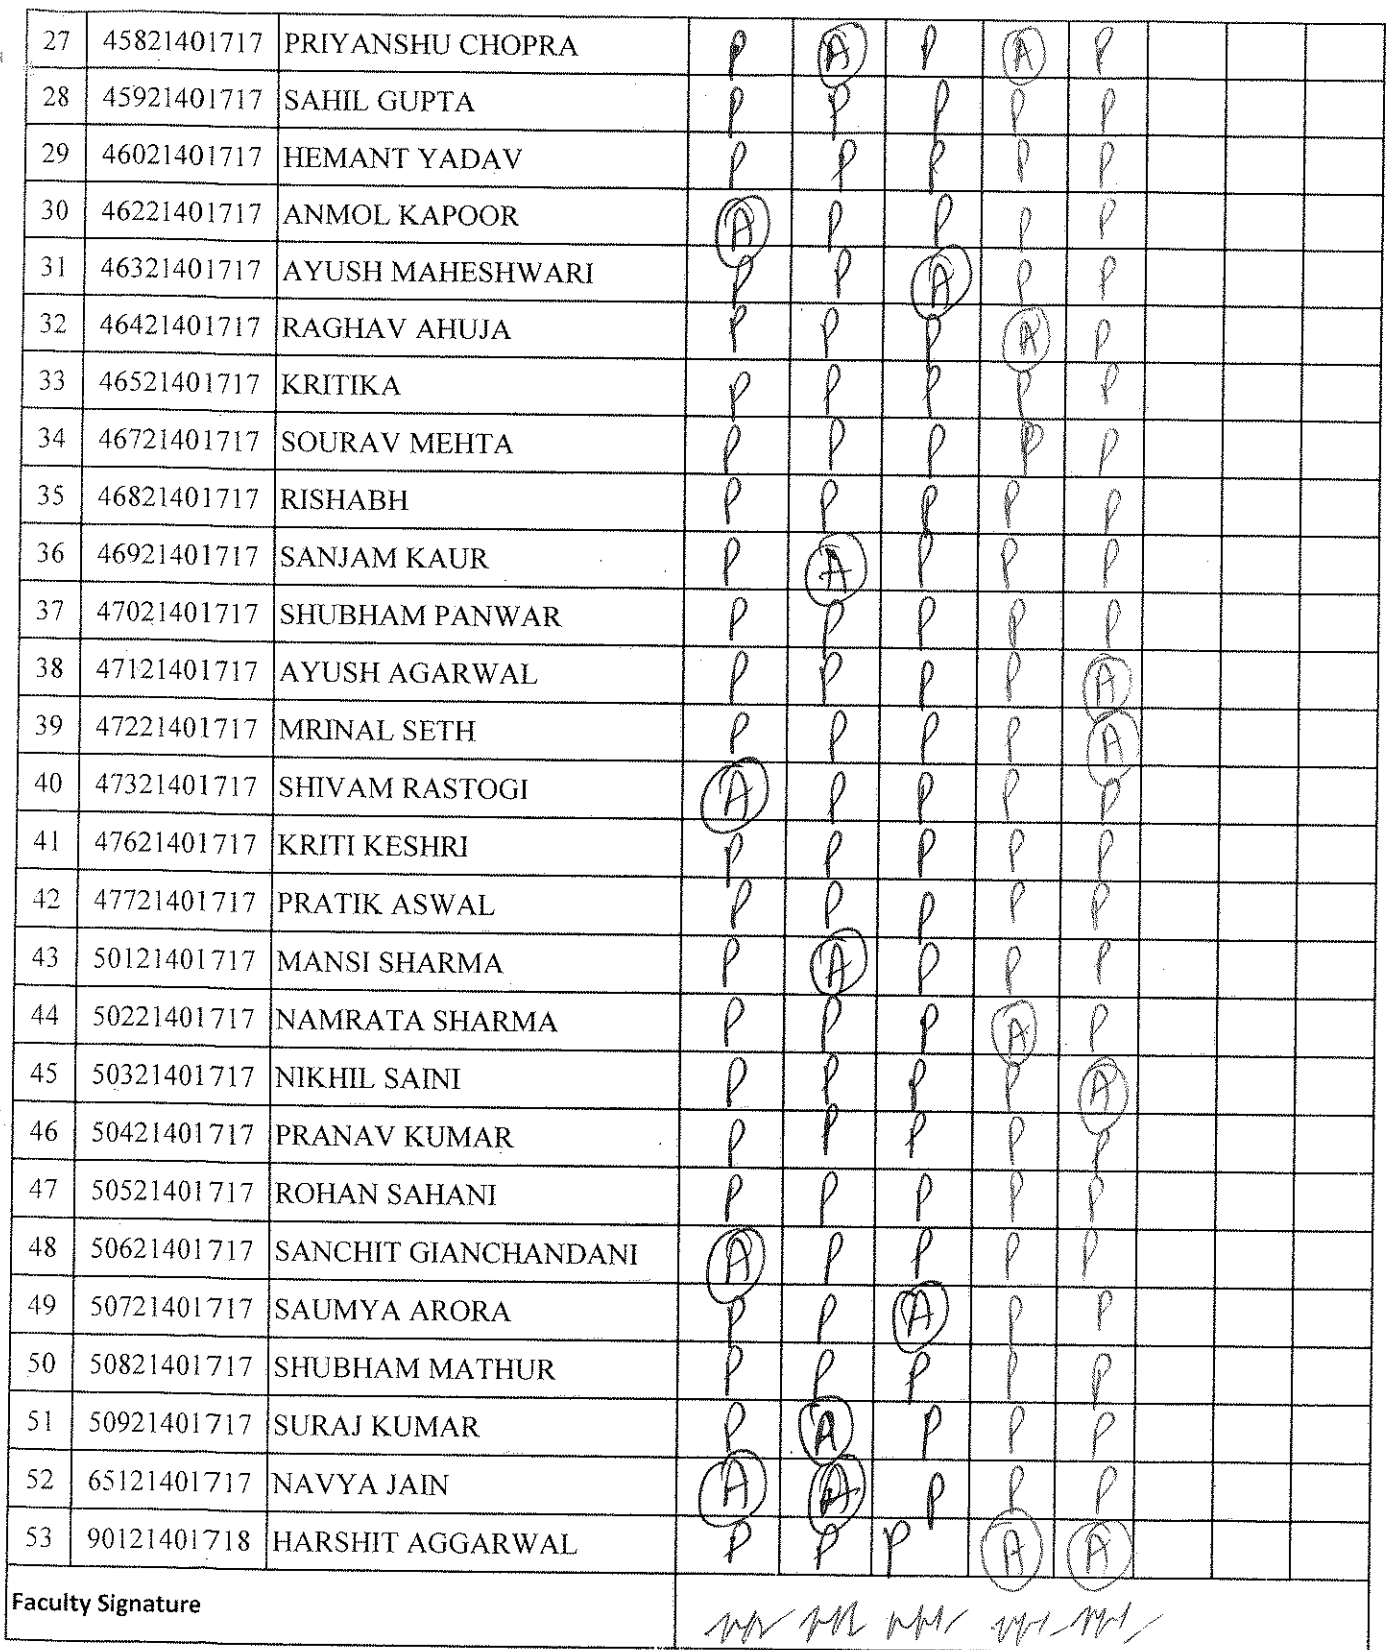 27 45821401717 PRIYANSHU CHOPRA P A P A P
28 45921401717 SAHIL GUPTA P P P P P
29 46021401717 HEMANT YADAV P P P P P
30 46221401717 ANMOL KAPOOR A P P P P
31 46321401717 AYUSH MAHESHWARI P P A P P
32 46421401717 RAGHAV AHUJA P P P A P
33 46521401717 KRITIKA P P P P P
34 46721401717 SOURAV MEHTA P P P P P
35 46821401717 RISHABH P P P P P
36 46921401717 SANJAM KAUR P A P P P
37 47021401717 SHUBHAM PANWAR P P P P P
38 47121401717 AYUSH AGARWAL P P P P A
39 47221401717 MRINAL SETH P P P P A
40 47321401717 SHIVAM RASTOGI A P P P P
41 47621401717 KRITI KESHRI P P P P P
42 47721401717 PRATIK ASWAL P P P P P
43 50121401717 MANSI SHARMA P A P P P
44 50221401717 NAMRATA SHARMA P P P A P
45 50321401717 NIKHIL SAINI P P P P A
46 50421401717 PRANAV KUMAR P P P P P
47 50521401717 ROHAN SAHANI P P P P P
48 50621401717 SANCHIT GIANCHANDANI A P P P P
49 50721401717 SAUMYA ARORA P P A P P
50 50821401717 SHUBHAM MATHUR P P P P P
51 50921401717 SURAJ KUMAR P A P P P
52 65121401717 NAVYA JAIN A A P P P
53 90121401718 HARSHIT AGGARWAL P P P A A
Faculty Signature